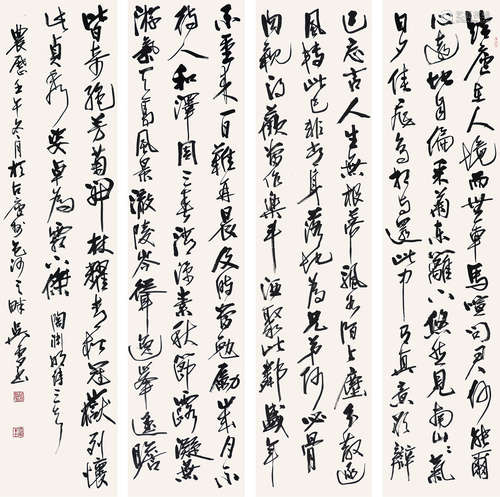 結廬在人境而無車馬喧問君何能爾
心遠地自偏采菊東籬下悠然見南山山氣
日夕佳飛鳥相與還此中有真意欲辯
已忘言人生無根蒂飄如陌上塵分散逐
風轉此已非常身落地為兄弟何必骨
肉親得歡當作樂斗酒聚比鄰盛年
不重來一日難再晨及時當勉勵歲月不
待人和澤周三春清涼素秋節露凝無
游氛天高風景澈陵岑聳逸峰遙瞻
皆奇絕芳菊開林耀青松冠巖列懷
此貞秀姿卓為霜下傑 陶淵明詩三首
農歷壬午冬月於石